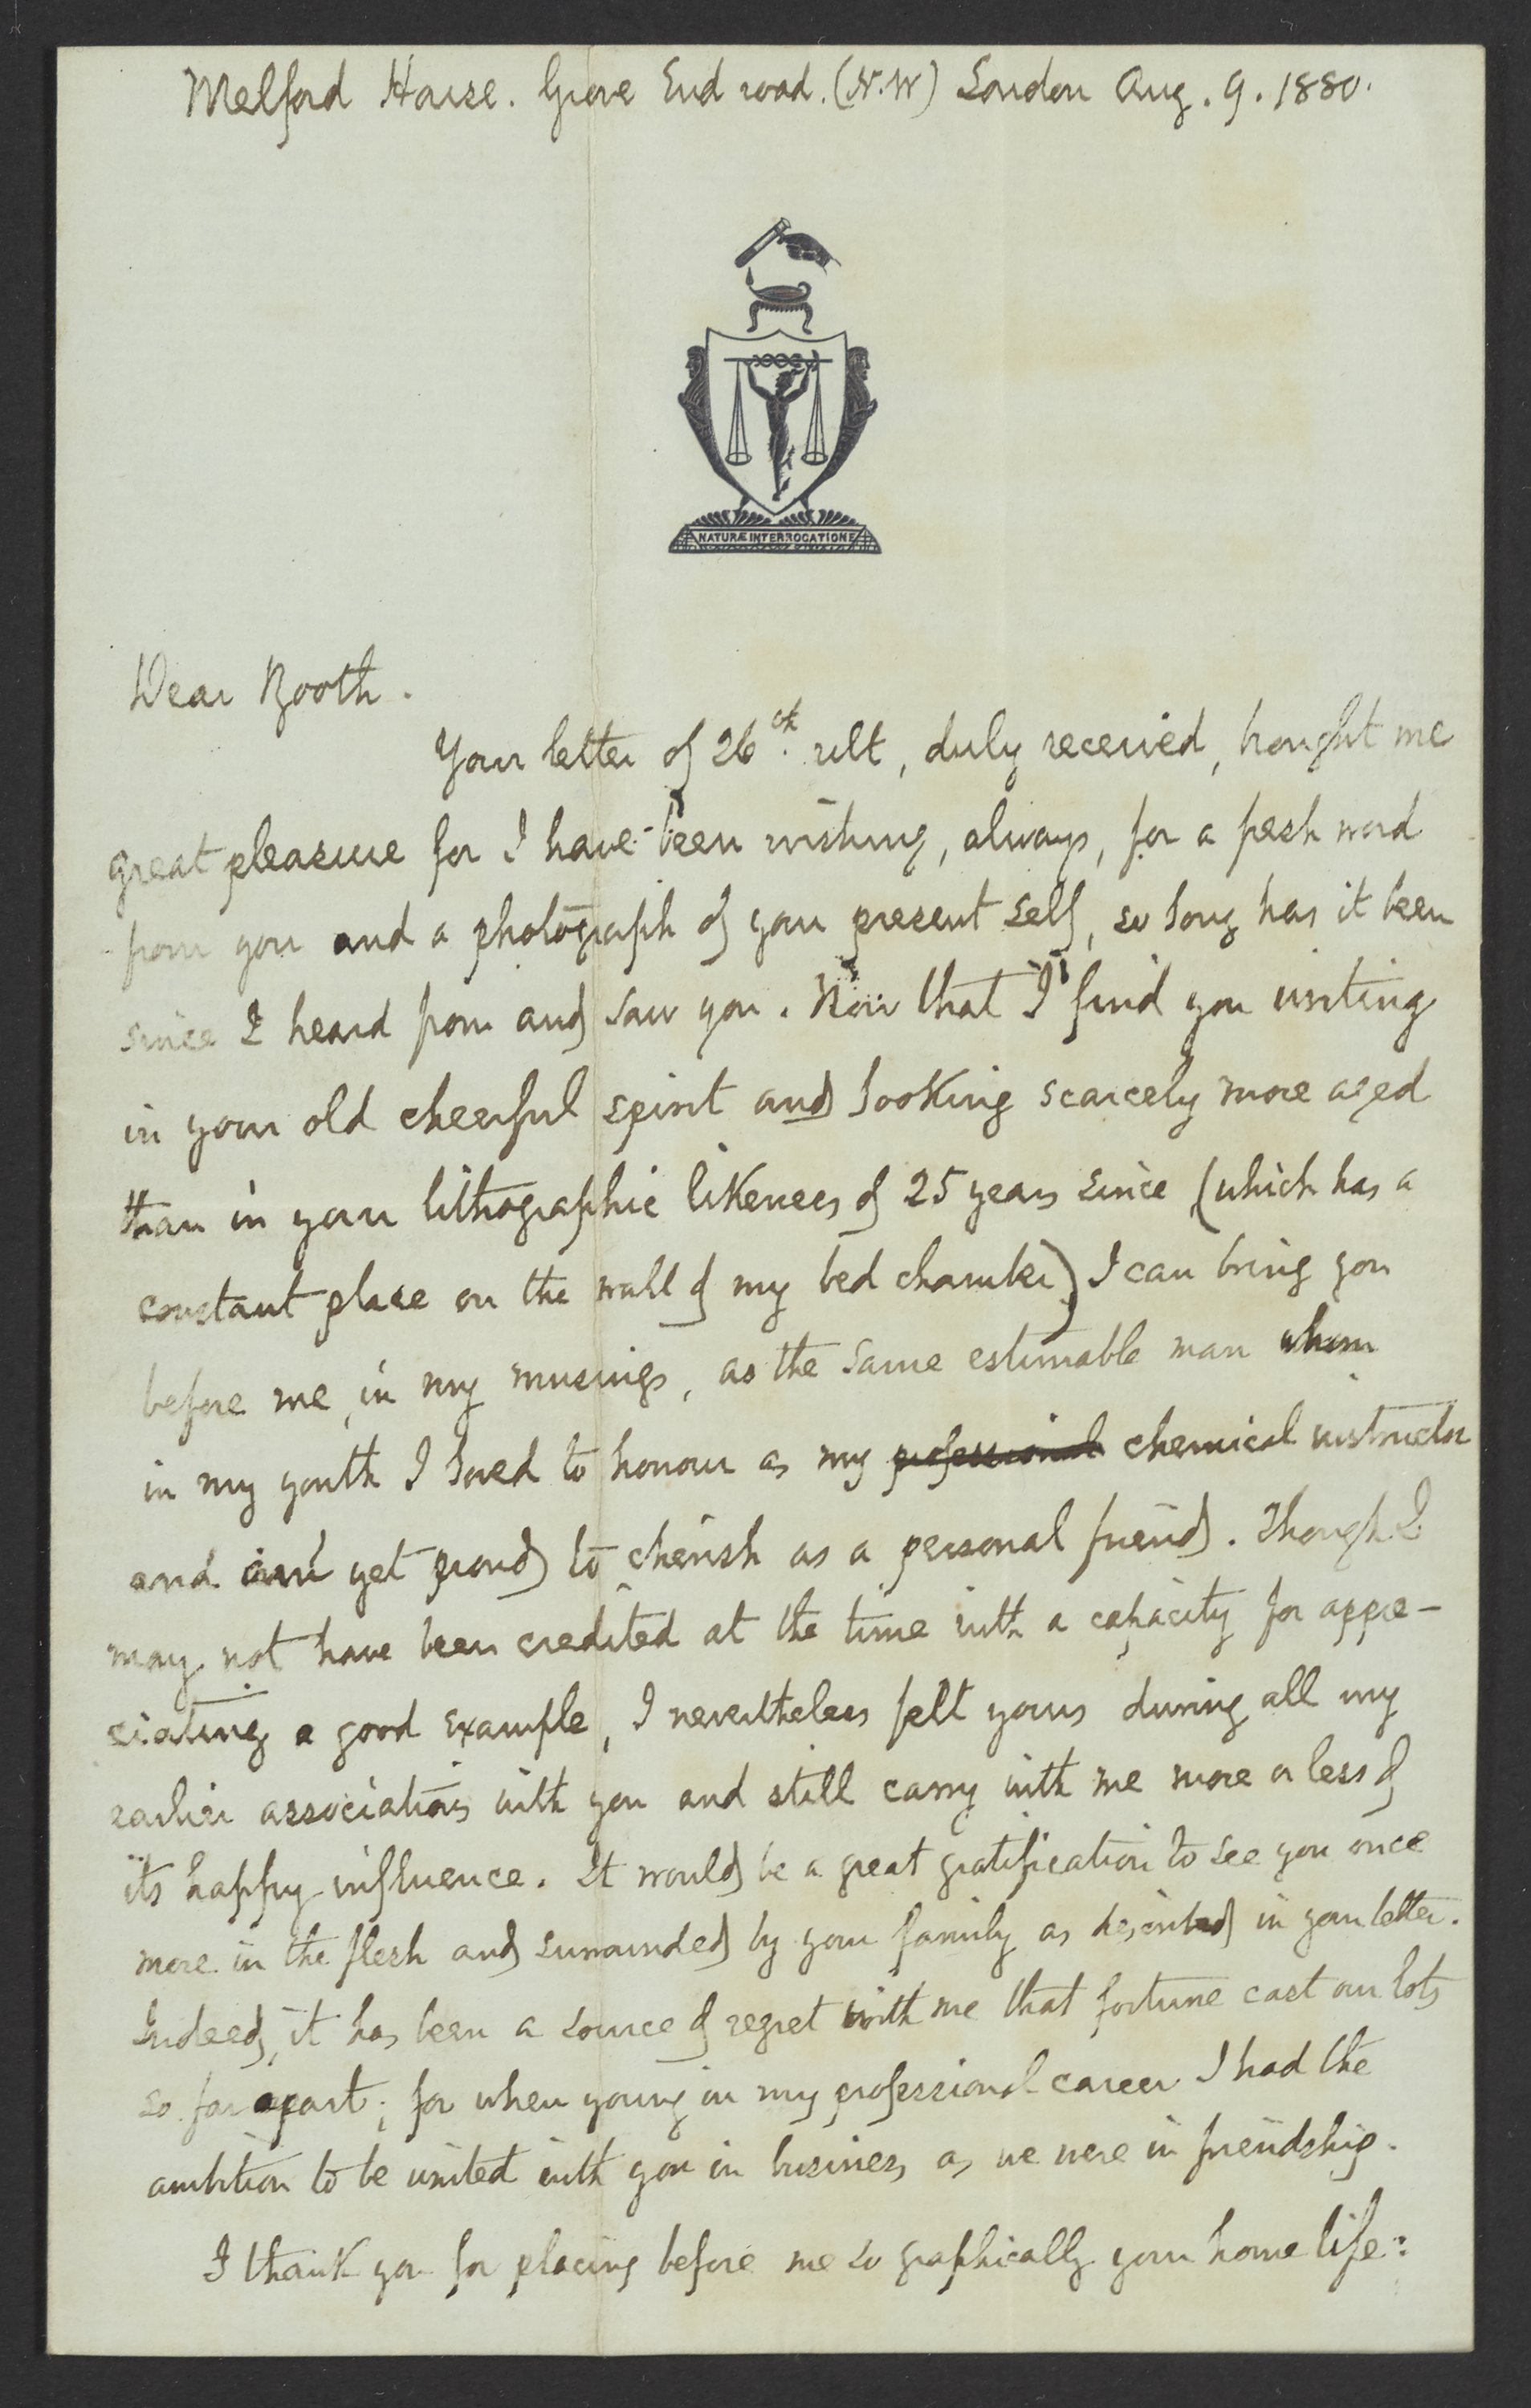 Melford House. Grove End road. (N.W) London Aug. 9. 1880.
NATURÆ INTERROGATIONE
Dear Booth.
Your letter of 26th. ult, duly received, brought me
great pleasure for I have been wishing, always, for a fresh word
from you and a photograph of your present self, so long has it been
since I heard from and saw you. Now that I find you writing
in your old cheerful spirit and looking scarcely more aged
than in your lithographic likeness of 25 years since (which has a
constant place on the wall of my bed chamber) I can bring you
before me, in my musings, as the same estimable man whom
in my youth I loved to honour as my professional chemical instructor
and am yet proud to cherish as a personal friend. Though I
may not have been credited at the time with a capacity for appre-
ciating a good example, I nevertheless felt yours during all my
earlier associations with you and still carry with me more or less of
its happy influence. It would be a great gratification to see you once
more in the flesh and surrounded by your family as described in your letter.
Indeed, it has been a source of regret with me that fortune cast our lots
so far apart; for when young in my professional career I had the
ambition to be united with you in business as we were in friendship.
I thank you for placing before me so graphically your home life: